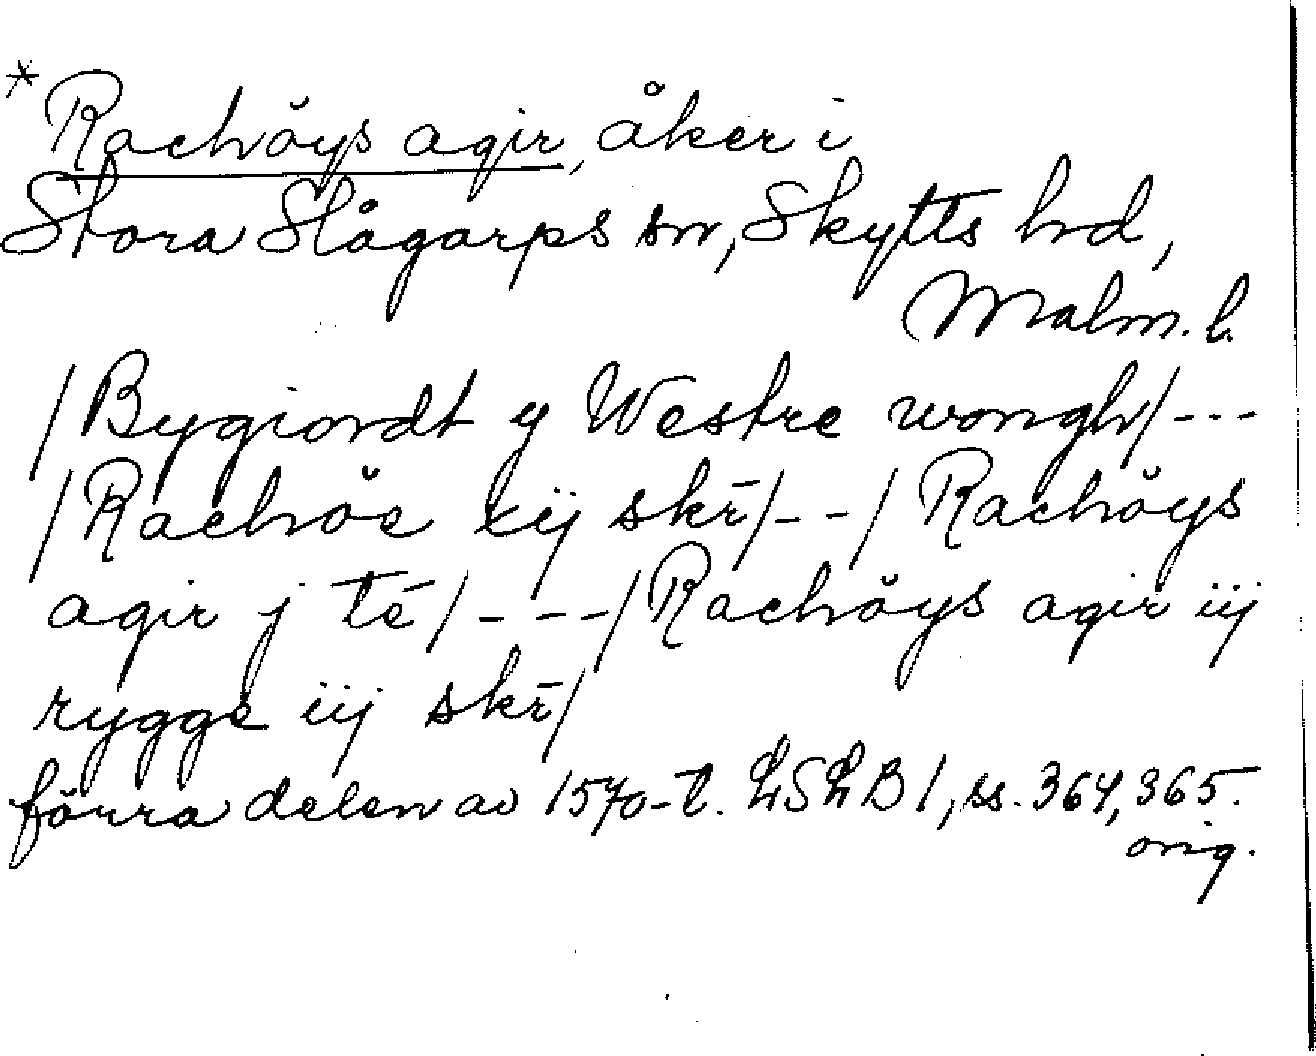 *Rachöys agir, åker i
Stora Slågarps sn, Skytts hd,
Malm. l.
/Bygiordt y Westre wongh/---
/Rachöe xij skr̄/--/Rachöys
agir j té/---/Rachöys agir iij
rygge iij skr̄/
förra delen av 1570-t. LSLB 1, ss. 364, 365.
orig.